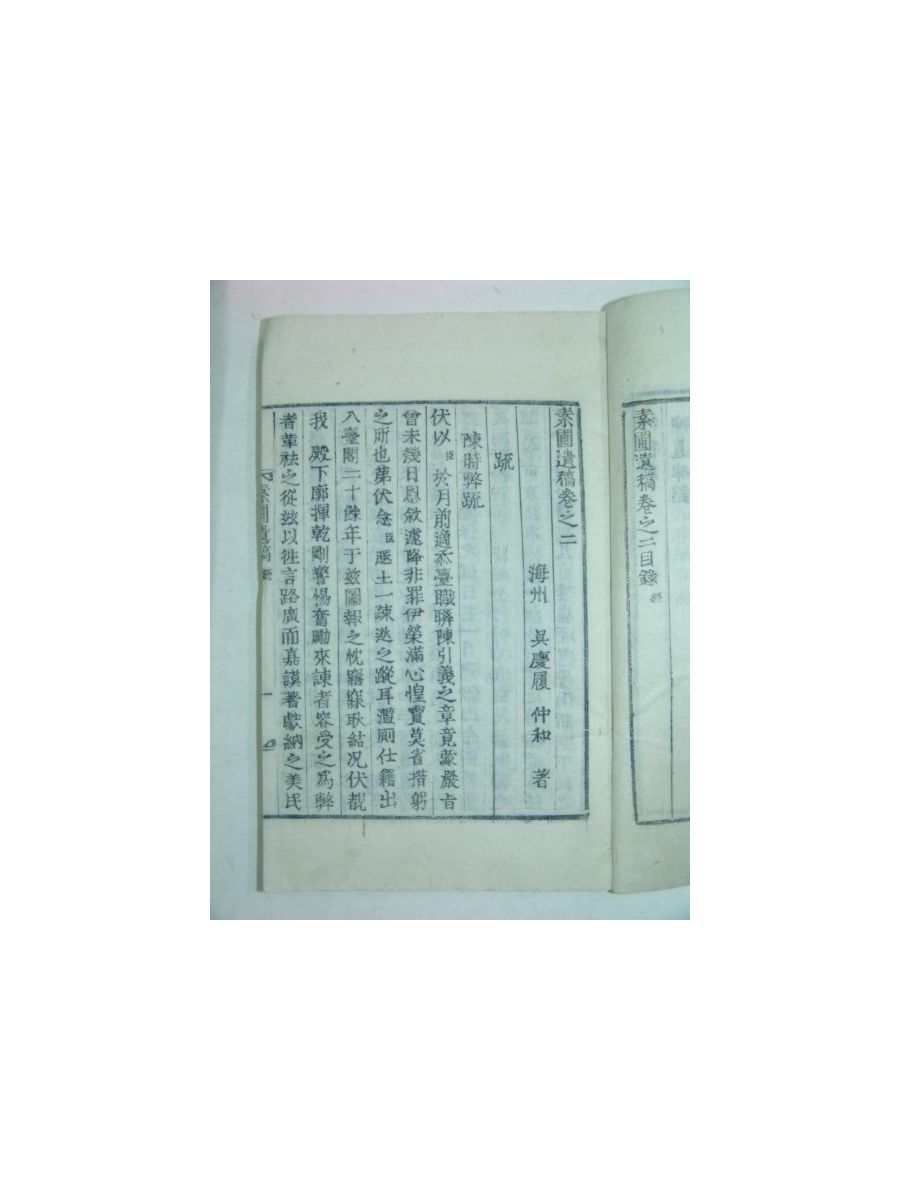 素圃遺稿卷之二目錄 終
素圃遺稿卷之二
海州 吳慶履 仲和 著
疏
陳時弊疏
伏以臣於月前適忝臺職聯陳引義之章竟蒙嚴旨
曾未幾日恩敘遽降非罪伊榮滿心惶實莫省措躬
之所也第伏念臣遐土一疎逖之蹤耳濫廁仕籍出
入臺閣二十餘年于玆圖報之忱寤寐耿結况伏覩
我 殿下廓揮乾剛警惕奮勵來諫者容受之爲弊
者革袪之從玆以徃言路廣而嘉謨著獻納之美氏
素圃遺稿 疏 一